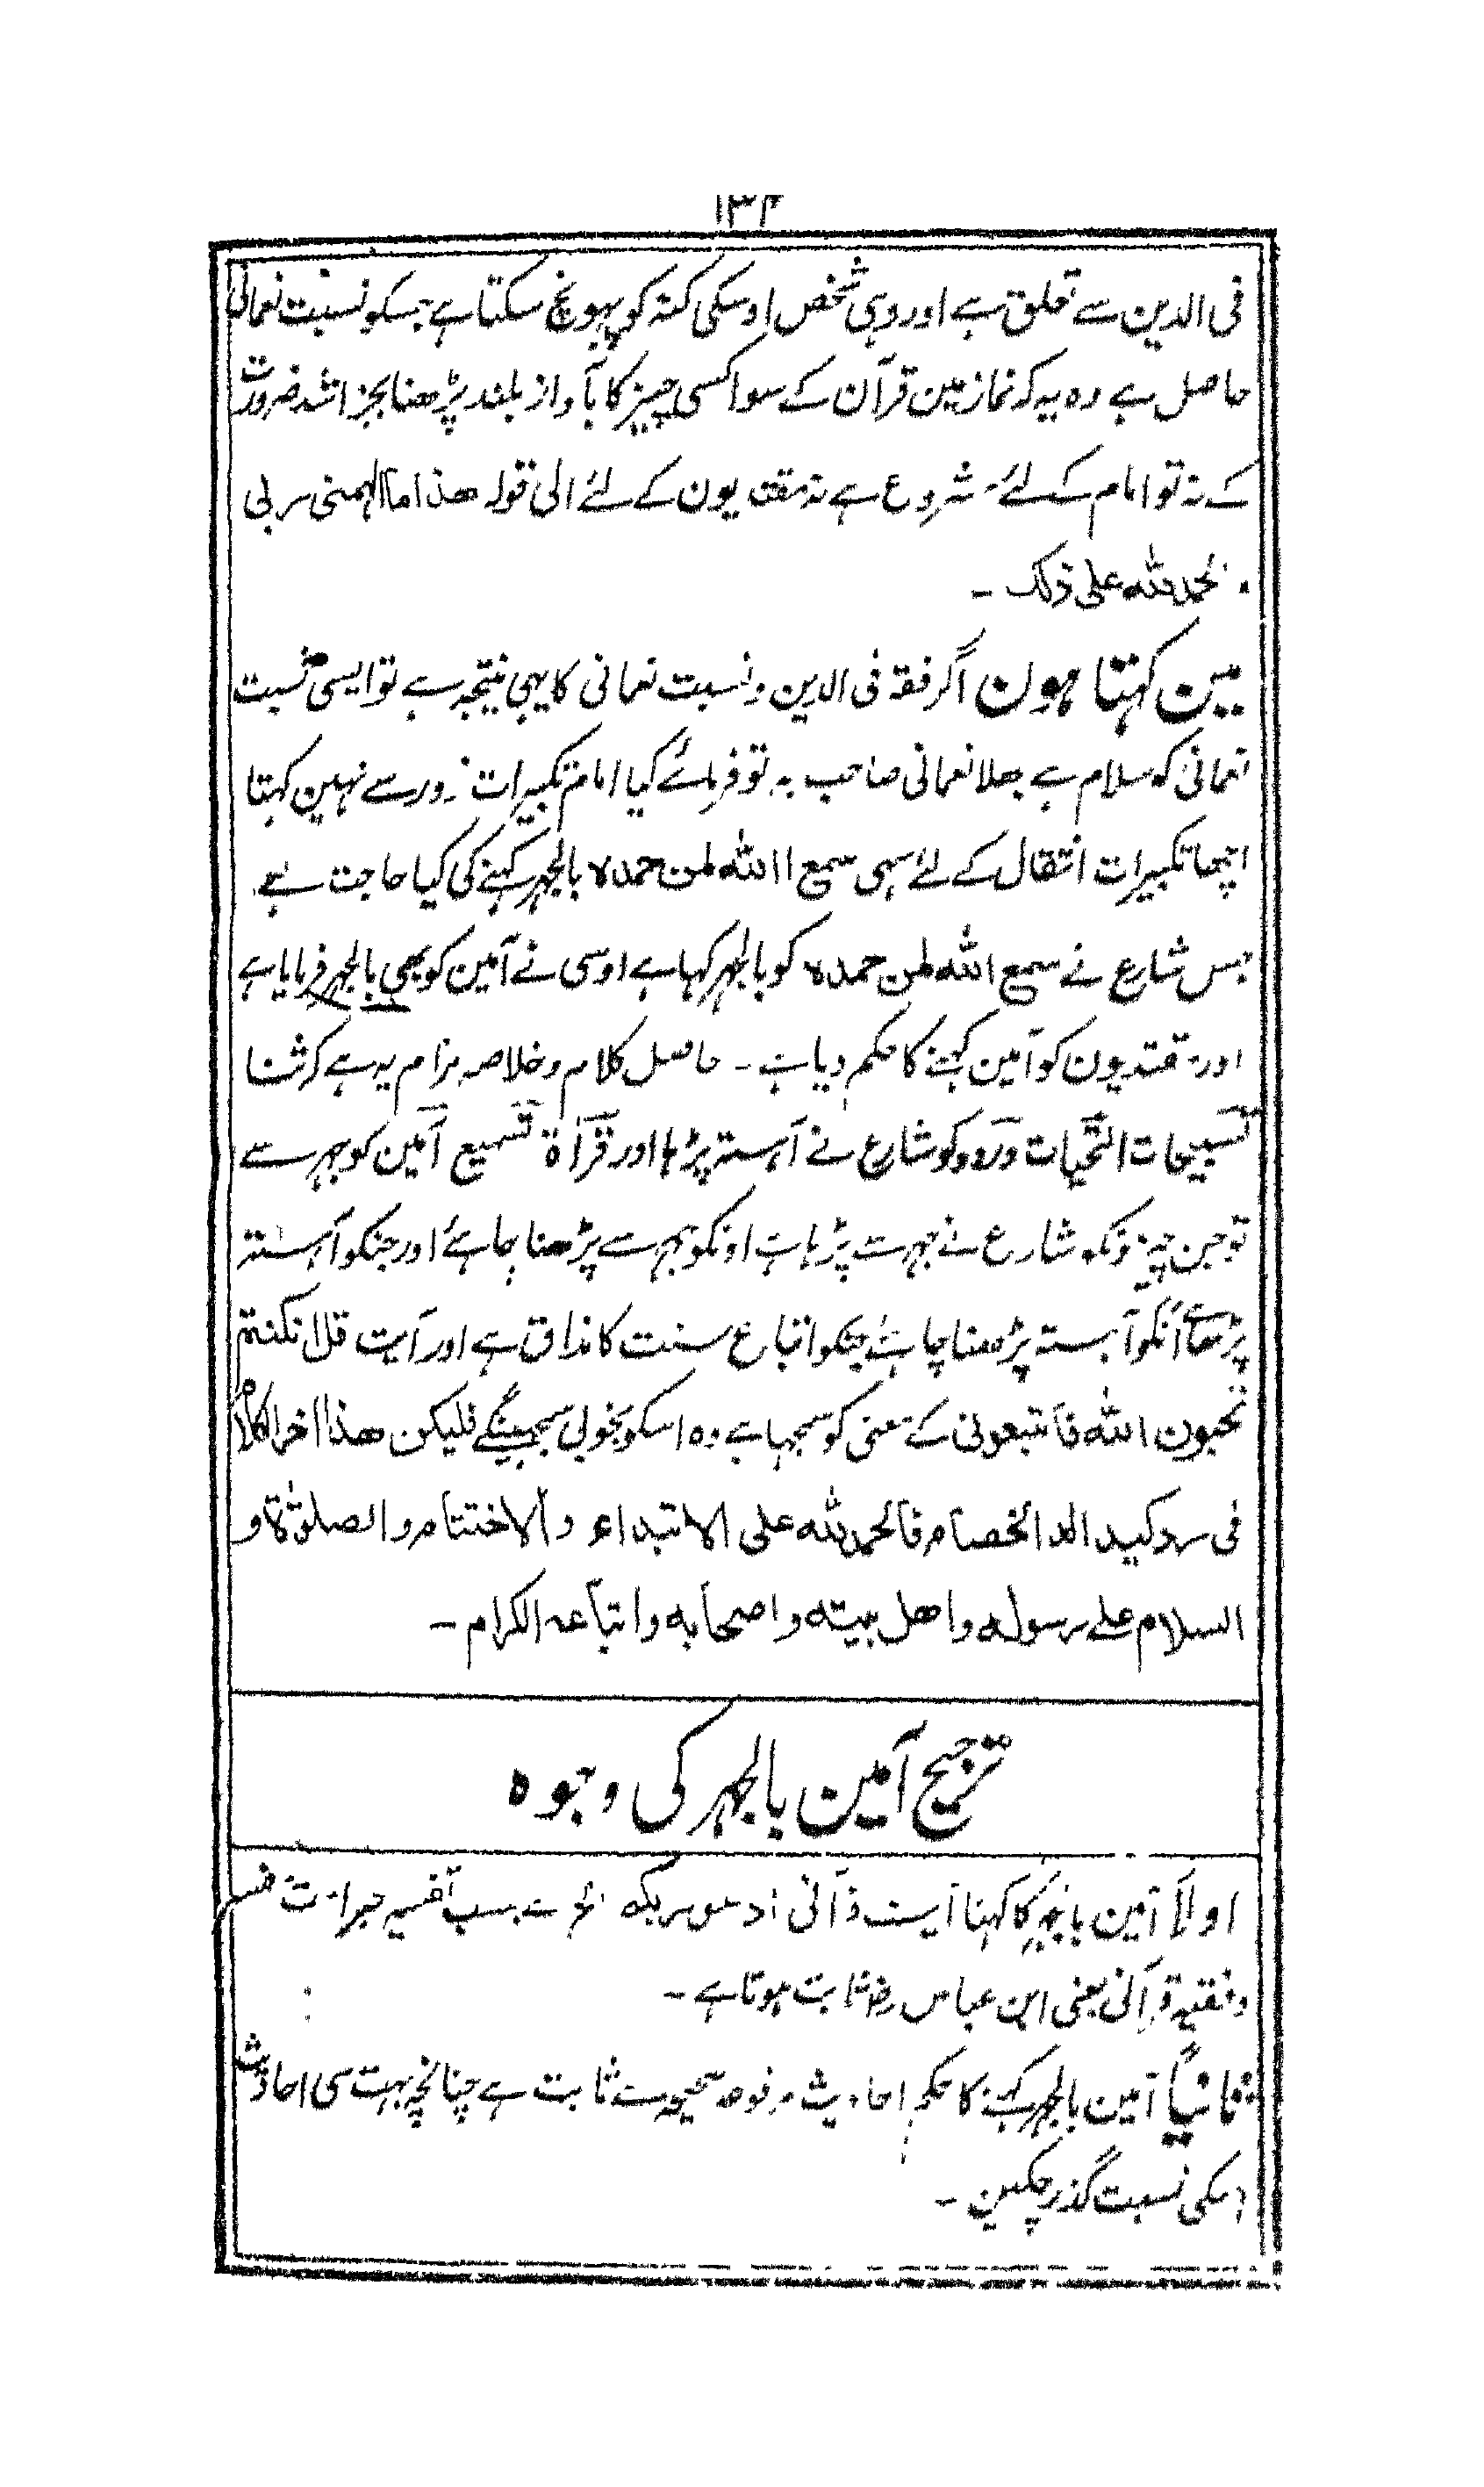 ۱۳۴
فی الدین سے تعلق ہے اور وہی شخص اوسکی کنہ کو پہونچ سکتا ہے جسکو نسبت نعمانی
حاصل ہے وہ یہ کہ نماز مین قرآن کے سوا کسی چیز کا بآواز بلند پڑھنا بجز اشد ضرورت
کے نہ تو امام کے لئے مشروع ہے نہ مقتدیون کے لئے الی قولہ ھذا ما الھمنی ربی
الحمد للہ علی ذلک ۔
مین کہتا ہون اگر فقہ فی الدین و نسبت نعمانی کا یہی نتیجہ ہے تو ایسی نسبت
نعمانی کو سلام ہے بھلا نعمانی صاحب یہ تو فرمائے کیا امام تکبیرات زور سے نہین کہتا
اچھا تکبیرات انتقال کے لئے سہی سمع اللہ لمن حمدہ بالجہر کہنے کی کیا حاجت ہے
جس شارع نے سمع اللہ لمن حمدہ کو بالجہر کہا ہے اوسی نے آمین کو بھی بالجہر فرمایا ہے
اور مقتدیون کو آمین کہنے کا حکم دیا ہے ۔ حاصل کلام و خلاصہ مرام یہ ہے کہ ثنا
تسبیحات التحیات درود کو شارع نے آہستہ پڑہا اور قرآۃ تسمیع آمین کو جہر سے
تو جن چیزونکو شارع نے جہر سے پڑہا ہے اونکو جہر سے پڑھنا چاہئے اور جنکو آہستہ
پڑھا ہے اُنکو آہستہ پڑھنا چاہئے جنکو اتباع سنت کا مذاق ہے اور آیت قل ان کنتم
تحبون اللہ فاتبعونی کے معنی کو سمجہا ہے وہ اسکو بخوبی سمجہینگے فلیکن ھذا اخر الکلام
فی رد کید الد الخصام فالحمد للہ علی الابتداء والاختتام والصلوٰۃ و
السلام علے رسولہ واھل بیتہ واصحابہ واتباعہ الکرام ۔
ترجیح آمین بالجہر کی وجوہ
اولاً آمین بالجہر کا کہنا آیت قرآنی ادعو ربکم الخ سے بسبب تفسیر مفسر
و فقیہ قرآنی یعنی ابن عباس رض ثابت ہوتا ہے ۔
ثانیاً آمین بالجہر کہنے کا حکم احادیث مرفوعہ صحیحہ سے ثابت ہے چنانچہ بہت سی احادیث
اسکی نسبت گذر چکین ۔